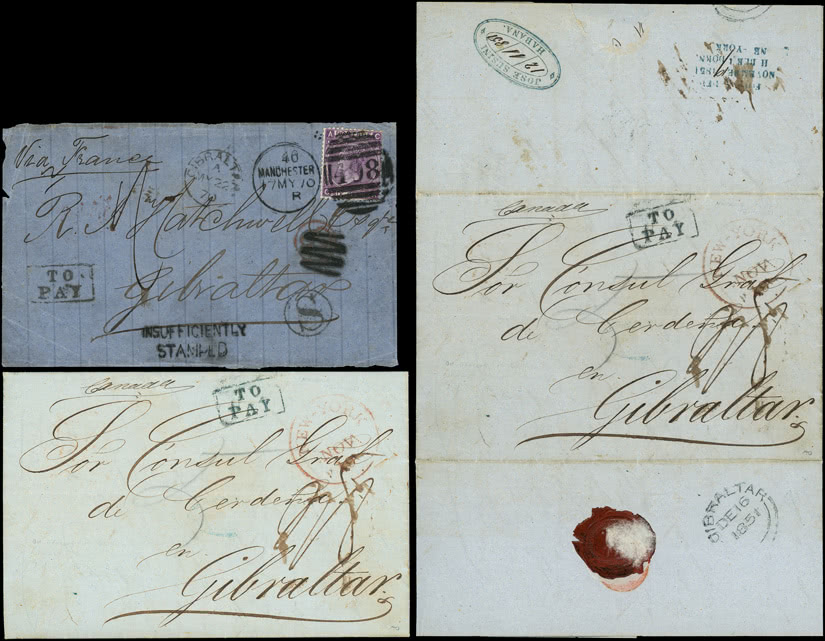 Via France
GIBRALTAR
A
MY 22
70
40
MANCHESTER
17 MY 70
R
498
R. A. Hatchwell Esqre
Gibraltar
TO
PAY
S
INSUFFICIENTLY
STAMPED
Canada
TO
PAY
NEW-YORK
NOV
Sor Consul Gral
de Cerdeña
en
Gibraltar.
JOSE SUSINI
12/11/850
HABANA.
NOVEMBRE 1851
Canada
TO
PAY
NEW-YORK
NOV
Sor Consul Gral
de Cerdeña
en
Gibraltar.
GIBRALTAR
DE 16
1851